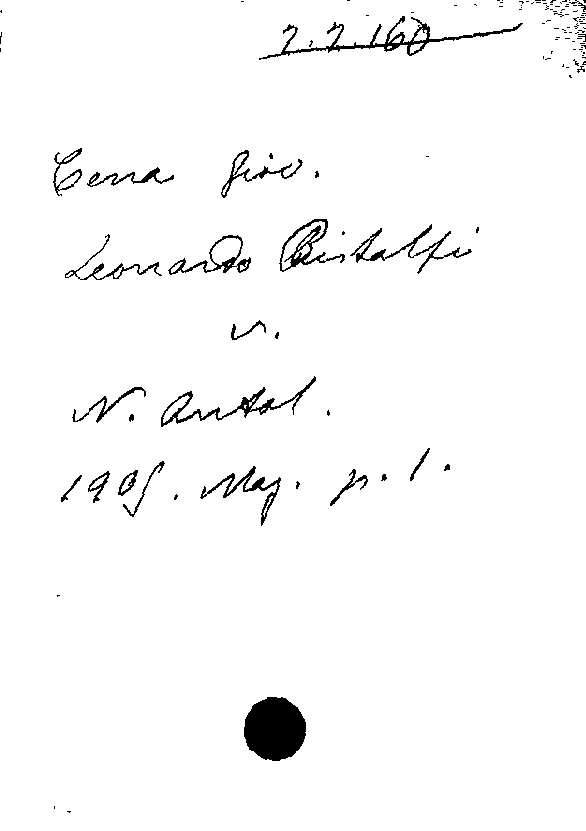 2.2.160
Cena Giov.
Leonardo Bistolfi
v.
N. Antol.
1905. Mag. p. 1.